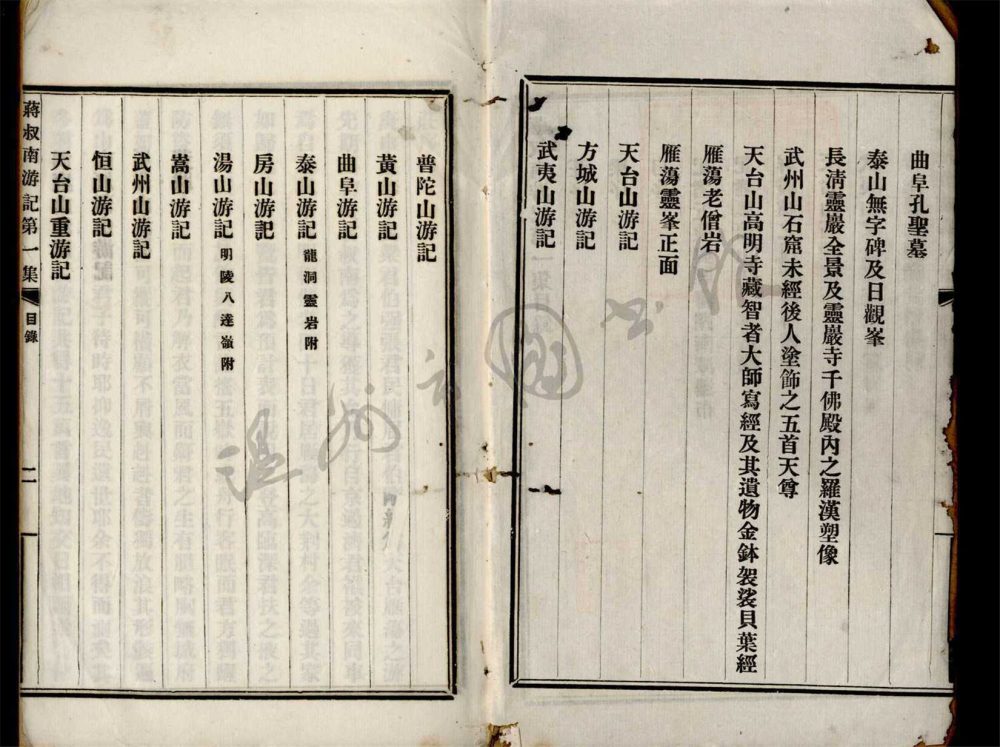 曲阜孔聖墓
泰山無字碑及日觀峯
長淸靈巖全景及靈巖寺千佛殿內之羅漢塑像
武州山石窟未經後人塗飾之五首天尊
天台山高明寺藏智者大師寫經及其遺物金鉢袈裟貝葉經
雁蕩老僧岩
雁蕩靈峯正面
天台山游記
方城山游記
武夷山游記
普陀山游記
黃山游記
曲阜游記
泰山游記 龍洞靈岩附
房山游記
湯山游記 明陵八達嶺附
嵩山游記
武州山游記
恒山游記
天台山重游記
蔣叔南游記第一集 目錄 二
溫州市圖書館